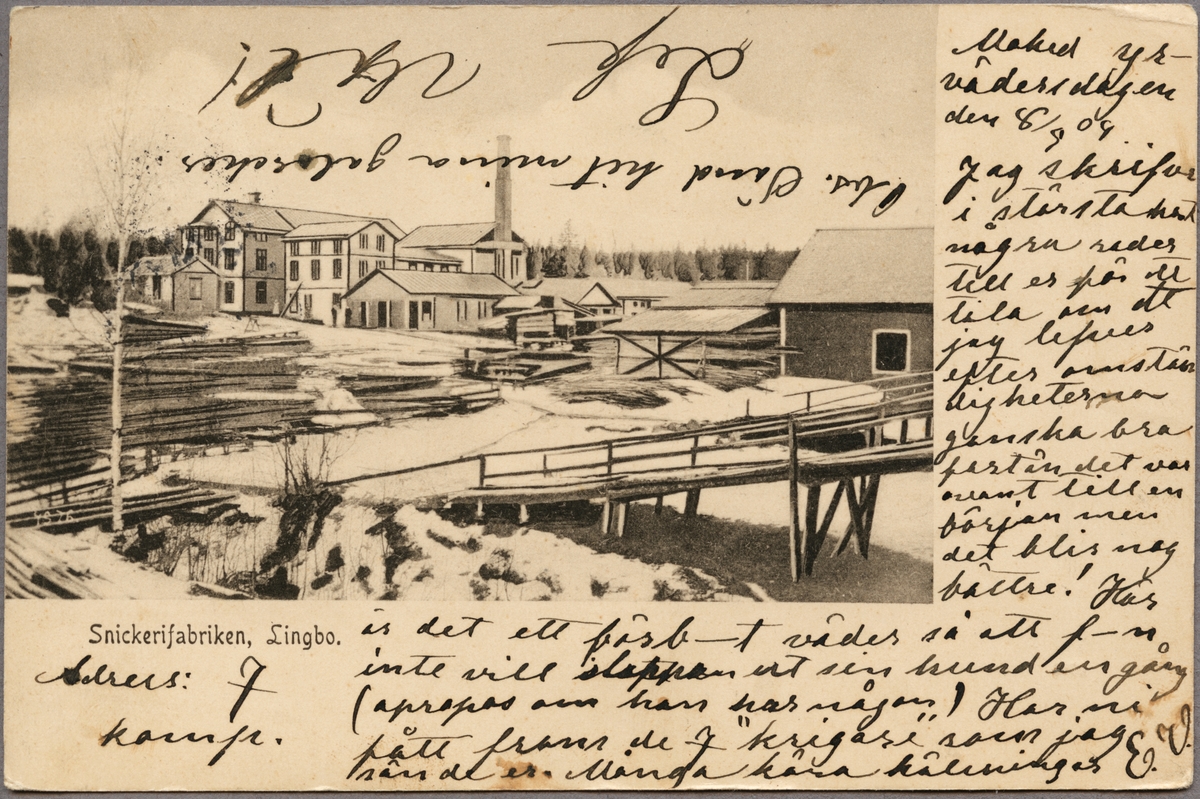 Maked yr-
vädersdagen
den 8/6 09
Jag skrifver
i största hast
några rader
till er för att
tala om att
jag lefver
efter omstän
digheterna
ganska bra
fastän det var
ovant till en
början men
det blir nog
bättre! Här
är det ett förb-t väder så att f-n
inte vill släppa ut sin hund en gång
(apropos om han har någon) Har ni
fått fram de 7 "krigare" som jag
sände er. Många kära hälsningar E. V.
Snickerifabriken, Lingbo.
Adress: 7
komp.
Obs. Sänd hit mina galoscher